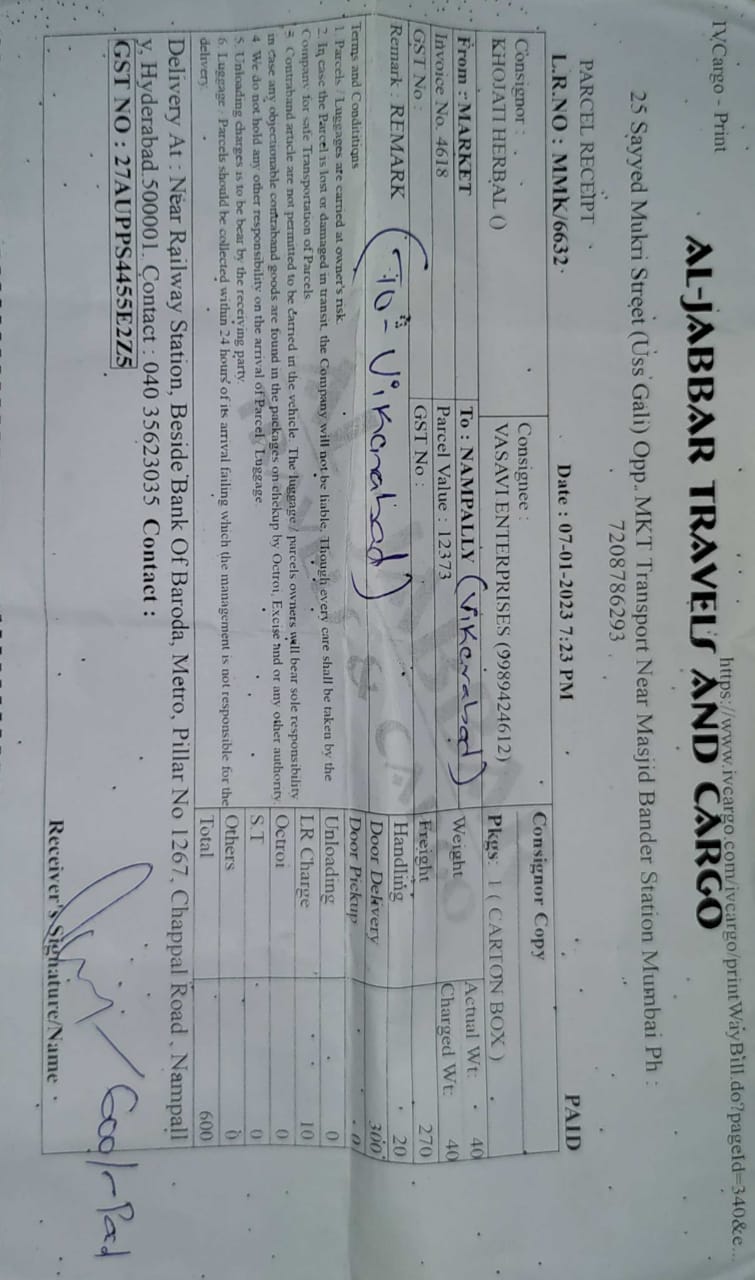 IVCargo - Print
https://www.ivcargo.com/ivcargo/printWayBill.do?pageId=340&e...
AL-JABBAR TRAVELS AND CARGO
25 Sayyed Mukri Street (Uss Gali) Opp. MKT Transport Near Masjid Bander Station Mumbai Ph :
7208786293
PARCEL RECEIPT
PAID
L.R.NO : MMK/6632
Date : 07-01-2023 7:23 PM
Consignor Copy
Consignor :
KHOJATI HERBAL ()
Consignee :
VASAVI ENTERPRISES (9989424612)
Pkgs: 1 ( CARTON BOX )
From : MARKET
To : NAMPALLY (Vikarabad)
Weight
Actual Wt: 40
Charged Wt: 40
Invoice No. 4618
Parcel Value : 12373
GST No :
GST No :
Freight 270
Remark : REMARK
(To - Vikarabad)
Handling 20
Door Delivery 300
Door Pickup 0
Unloading 0
LR Charge 10
Octroi 0
S.T 0
Others 0
Total 600
Terms and Condititiqns
1. Parcels / Luggages are carried at owner's risk
2. In case the Parcel is lost or damaged in transit, the Company will not be liable, Though every care shall be taken by the
Company for safe Transportation of Parcels
3. Contraband article are not permitted to be carried in the vehicle. The luggage / parcels owners will bear sole responsibility
in case any objectionable contraband goods are found in the packages on chekup by Octroi, Excise and or any other authority
4. We do not hold any other responsibility on the arrival of Parcel / Luggage
5. Unloading charges is to be bear by the receiving party.
6. Luggage / Parcels should be collected within 24 hours of its arrival failing which the management is not responsible for the
delivery.
Delivery At : Near Railway Station, Beside Bank Of Baroda, Metro, Pillar No 1267, Chappal Road , Nampall
y, Hyderabad 500001. Contact : 040 35623035 Contact :
GST NO : 27AUPPS4455E2Z5
600/- Pad
Receiver's Signature/Name